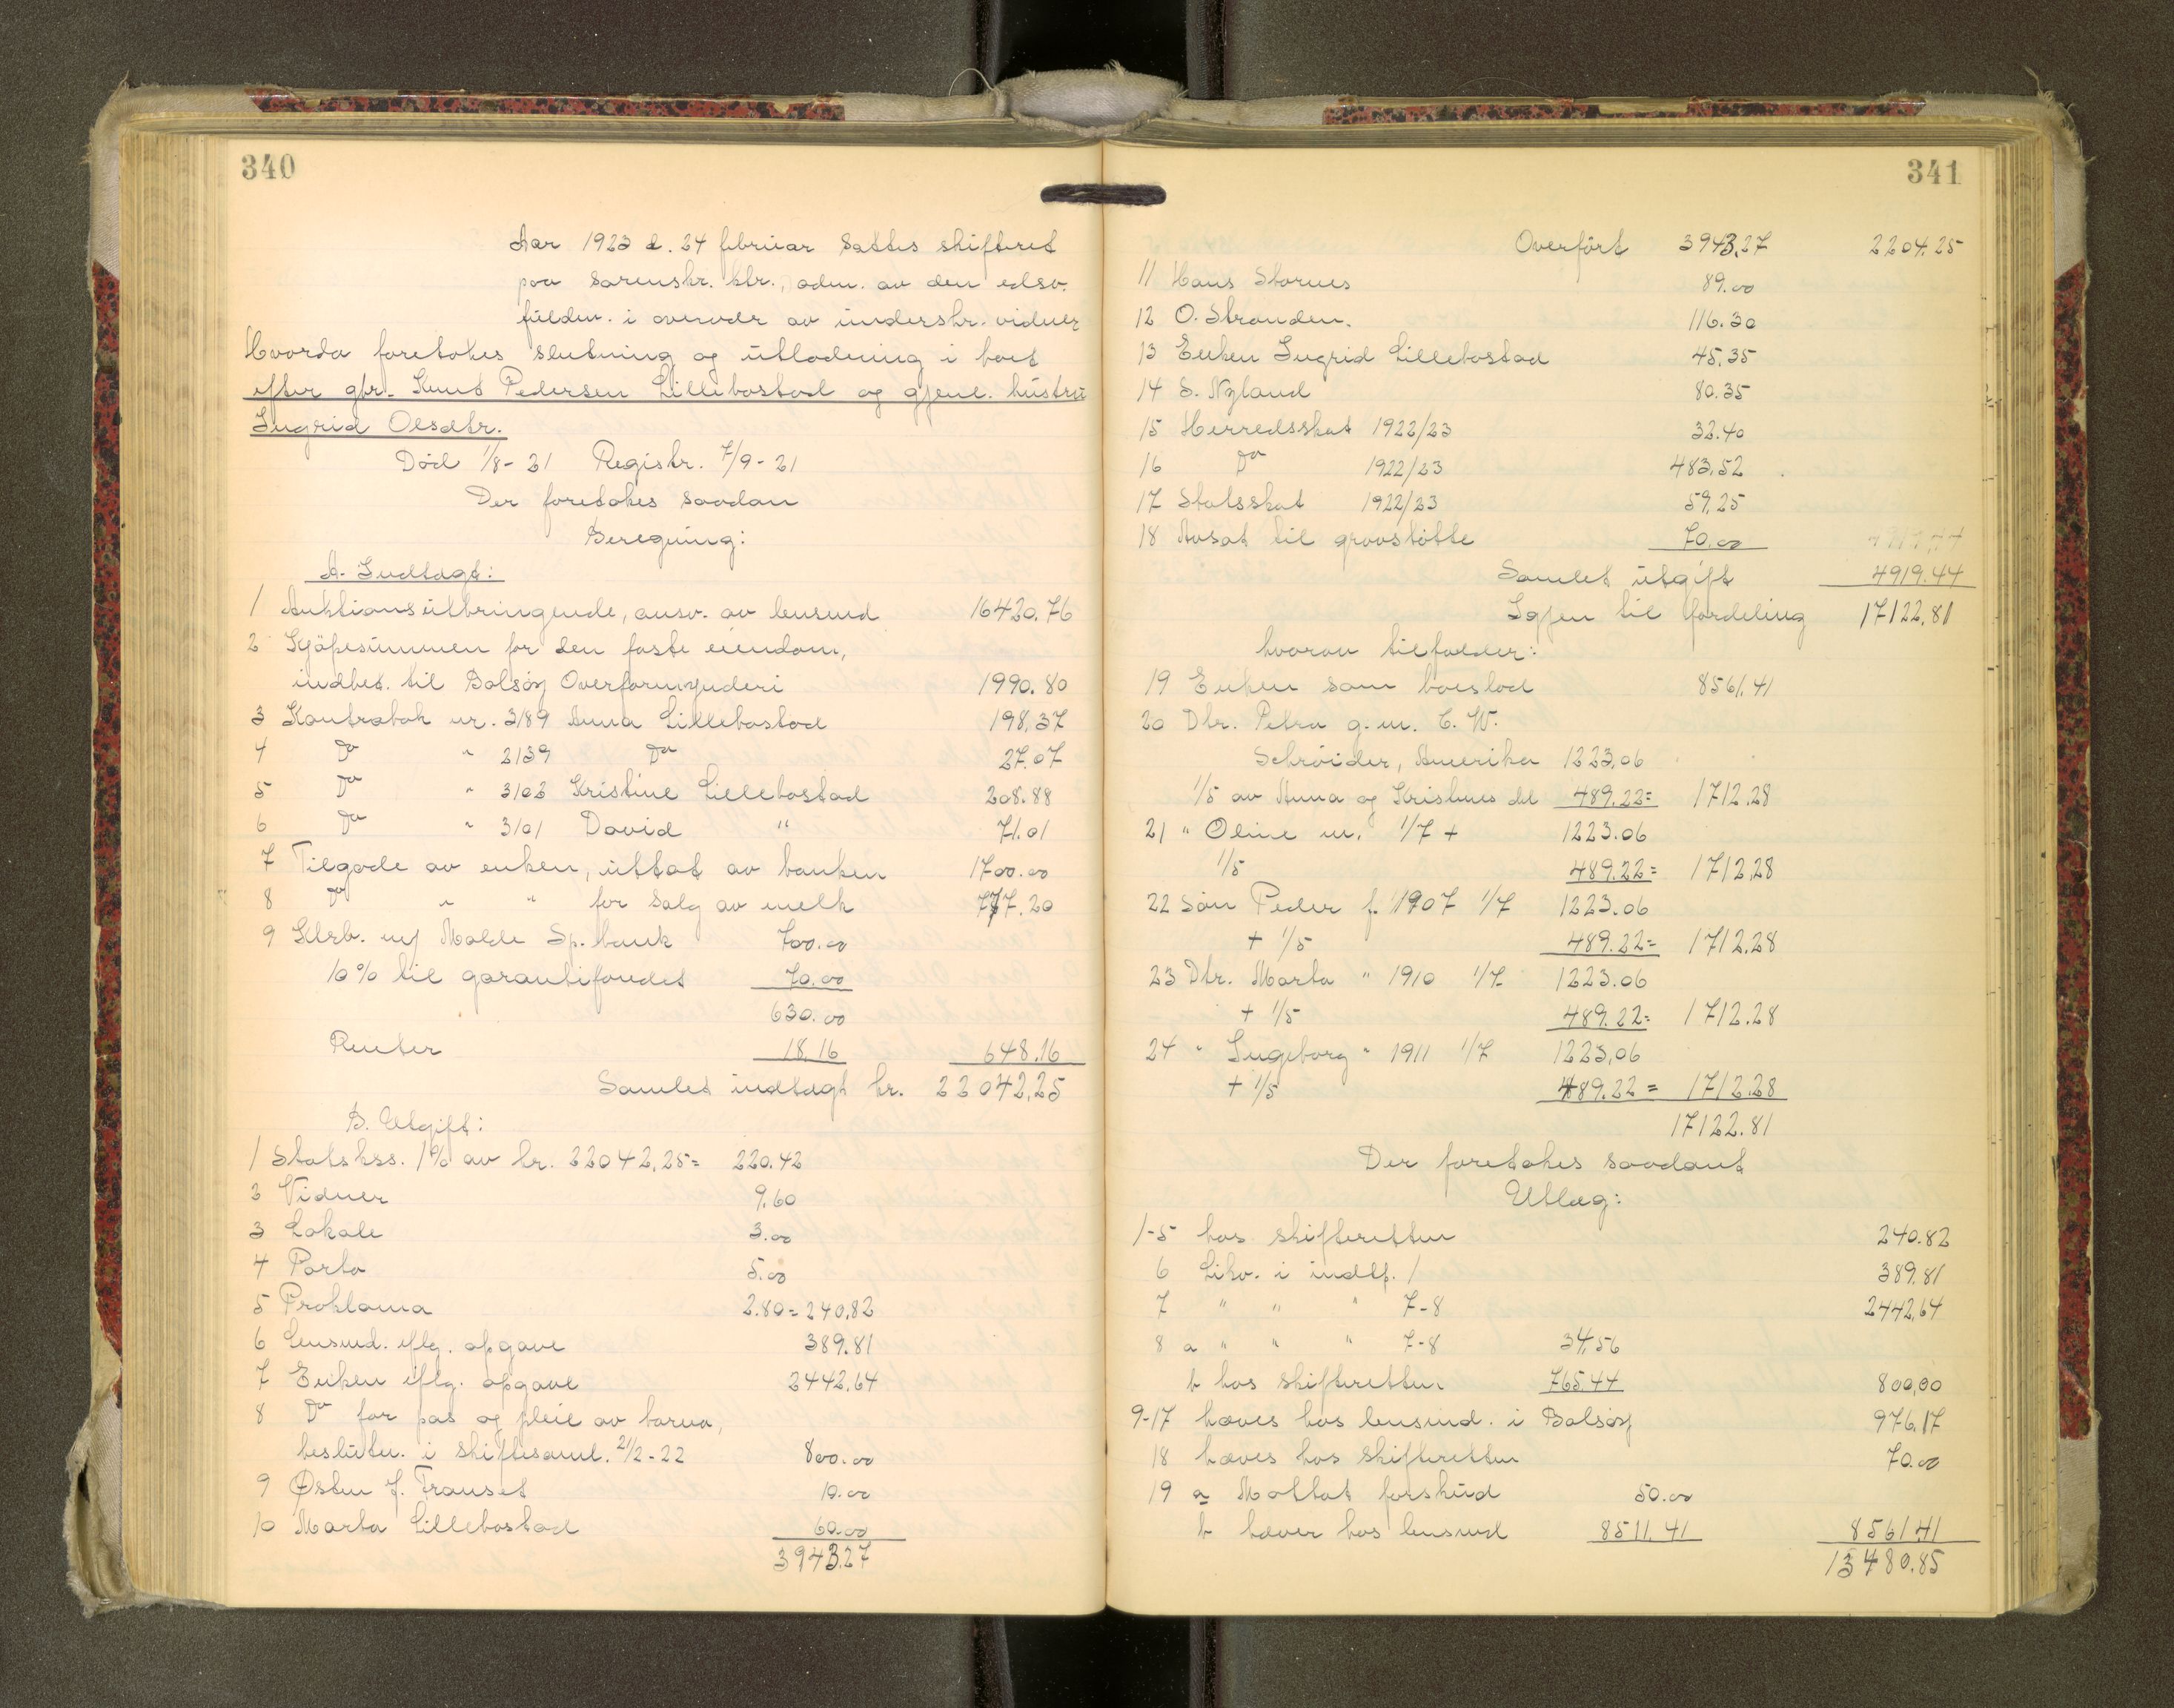 340
Aar 1923 d. 24 februar sattes skifteret
paa sorenskr. ktr., adm. av den edsv.
fuldm. i overvær av underskr. vidner
Hvorda foretokes slutning og utlodning i boet
efter gbr. Knut Pedersen Lillebostad og gjenl. hustru
Ingrid Olsdtr.
Død 1/8-21 Registr. 7/9-21
Der foretokes saadan
Beregning:
A. Indtægt:
1 Auktionsutbringende, ansv. av lensmd 16420.76
2 Kjöpesummen for den faste eiendom,
indbet. til Bolsöy Overformynderi 1990.80
3 Kontrabok nr. 3189 Anna Lillebostad 198.37
4 Do " 2139 Do 27.07
5 Do " 3102 Kristine Lillebostad 208.88
6 Do " 3101 David " 71.01
7 Tilgode av enken, uttat av banken 1700.00
8 Do " " for salg av melk 777.20
9 Ktrb. m/ Molde Sp.bank 700.00
10% til garantifondet 70.00
630.00
Renter 18.16 648.16
Samlet indtægt kr. 22042.25
B. Utgift:
1 Statskss. 1% av kr. 22042.25= 220.42
2 Vidner 9.60
3 Lokale 3.00
4 Porto 5.00
5 Proklama 2.80=240.82
6 Lensmd. iflg. opgave 389.81
7 Enken iflg. opgave 2442.64
8 Do for pas og pleie av barna,
beslutn. i skiftesaml. 21/2-22 800.00
9 Østen J. Franset 10.00
10 Marta Lillebostad 60.00
3943.27
341
Overfört 3943.27 2204.25
11 Hans Stornes 89.00
12 O. Stranden. 116.30
13 Enken Ingrid Lillebostad 45.35
14 S. Nyland 80.35
15 Herredsskat 1922/23 32.40
16 Do 1922/23 483.52
17 Statsskat 1922/23 59.25
18 Avsat til gravstötte 70.00
Samlet utgift 4919.44
Igjen til fordeling 17122.81
hvorav tilfalder:
19 Enken som boeslod 8561.41
20 Dtr. Petra g.m. C. W.
Schröider, Amerika 1223.06
1/5 av Anna og Kristines del 489.22= 1712.28
21 " Oline m. 1/7 + 1223.06
1/5 489.22= 1712.28
22 Sön Peder f. 1907 1/7 1223.06
+ 1/5 489.22= 1712.28
23 Dtr. Marta " 1910 1/7 1223.06
+ 1/5 489.22= 1712.28
24 " Ingeborg " 1911 1/7 1223.06
+ 1/5 489.22 = 1712.28
17122.81
Der foretokes saadant
Utlæg:
1-5 hos skifteretten 240.82
6 Likv. i indtp. 1 389.81
7 " " " 7-8 2442.64
8 a " " " 7-8 34.56
b hos skifteretten 765.44 800.00
9-17 hæves hos lensmd. i Bolsöy 976.17
18 hæves hos skifteretten 70.00
19 a Mottat forskud 50.00
b hæver hos lensmd 8511.41 8561.41
13480.85